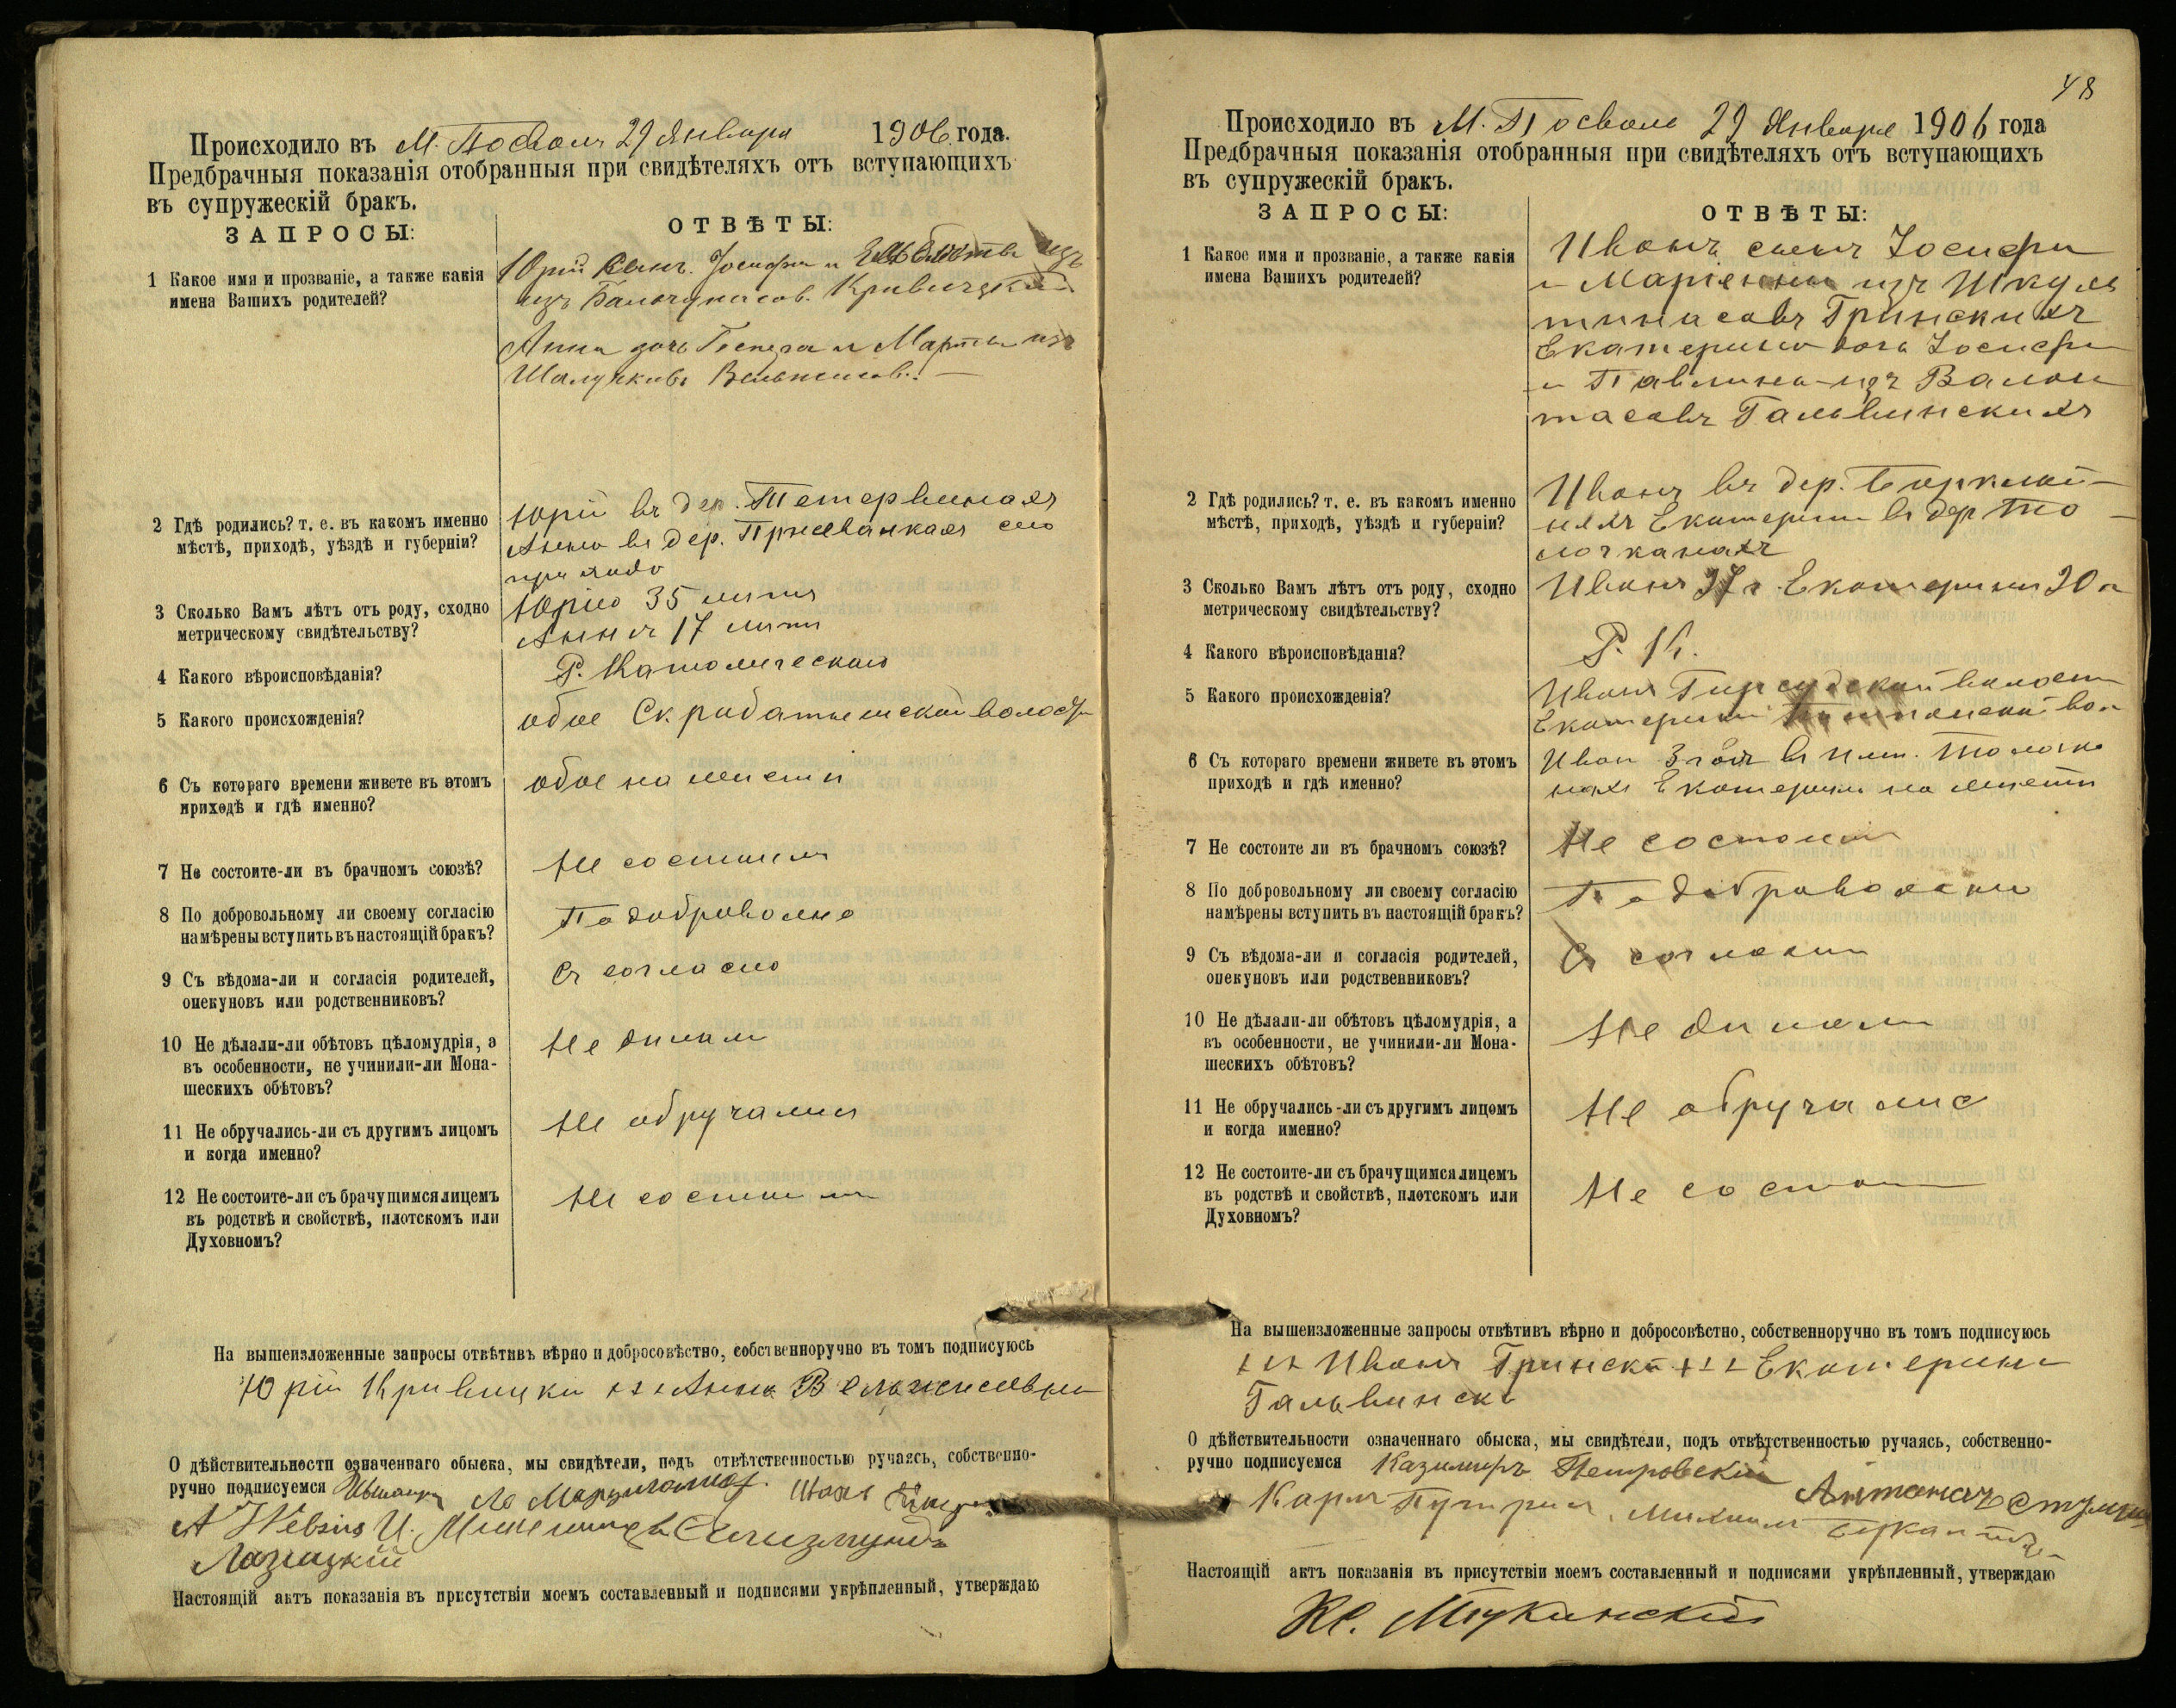 Происходило въ М. Посволь 29 Января 1906 года.
Предбрачныя показанія отобранныя при свидѣтеляхъ отъ вступающихъ
въ супружескій бракъ.
ЗАПРОСЫ:
ОТВѢТЫ:
1 Какое имя и прозваніе, а также какія
имена Вашихъ родителей?
Юрій сынъ Іосифа и
изъ
Анна дочь и Марты изъ
2 Гдѣ родились? т. е. въ какомъ именно
мѣстѣ, приходѣ, уѣздѣ и губерніи?
Юрій въ дер. Тетервинахъ
Анна въ дер.
прихода
3 Сколько Вамъ лѣтъ отъ роду, сходно
метрическому свидѣтельству?
Юрію 35 лѣтъ
Аннѣ 17 лѣтъ
4 Какого вѣроисповѣданія?
Р. Католическаго
5 Какого происхожденія?
обое волости
6 Съ котораго времени живете въ этомъ
приходѣ и гдѣ именно?
обое на мѣстѣ
7 Не состоите-ли въ брачномъ союзѣ?
Не состоимъ
8 По добровольному ли своему согласію
намѣрены вступить въ настоящій бракъ?
По доброволно
9 Съ вѣдома-ли и согласія родителей,
опекуновъ или родственниковъ?
Съ согласно
10 Не дѣлали-ли обѣтовъ цѣломудрія, а
въ особенности, не учинили-ли Мона-
шескихъ обѣтовъ?
Не дилали
11 Не обручались-ли съ другимъ лицомъ
и когда именно?
Не обручались
12 Не состоите-ли съ брачущимся лицемъ
въ родствѣ и свойствѣ, плотскомъ или
Духовномъ?
Не состоимъ
На вышеизложенные запросы отвѣтивъ вѣрно и добросовѣстно, собственноручно въ томъ подписуюсь
Юрій Кривицки +++ Анна
О дѣйствительности означеннаго обыска, мы свидѣтели, подъ отвѣтственностью ручаясь, собственно-
ручно подписуемся
A Welsius
Настоящій актъ показанія въ присутствіи моемъ составленный и подписями укрѣпленный, утверждаю
48
Происходило въ М. Посволь 29 Января 1906 года
Предбрачныя показанія отобранныя при свидѣтеляхъ отъ вступающихъ
въ супружескій бракъ.
ЗАПРОСЫ:
ОТВѢТЫ:
1 Какое имя и прозваніе, а также какія
имена Вашихъ родителей?
Иванъ сынъ Іосифа
и Маріенны изъ Шкуль
тинасовъ Гринскихъ
Екатерина дочь Іосифа
и Павлина изъ Валон
тасовъ Гальвинскихъ
2 Гдѣ родились? т. е. въ какомъ именно
мѣстѣ, приходѣ, уѣздѣ и губерніи?
Иванъ въ дер.
няхъ Екатерина въ дер То
лочканахъ
3 Сколько Вамъ лѣтъ отъ роду, сходно
метрическому свидѣтельству?
Иванъ Екатерина 20 л
4 Какого вѣроисповѣданія?
Р. К.
5 Какого происхожденія?
Иванъ волости
Екатерина вол
6 Съ котораго времени живете въ этомъ
приходѣ и гдѣ именно?
Иван 3 год въ
Екатерина на мѣстѣ
7 Не состоите ли въ брачномъ союзѣ?
Не состоим
8 По добровольному ли своему согласію
намѣрены вступить въ настоящій бракъ?
По добровольно
9 Съ вѣдома-ли и согласія родителей,
опекуновъ или родственниковъ?
Съ согласия
10 Не дѣлали-ли обѣтовъ цѣломудрія, а
въ особенности, не учинили-ли Мона-
шескихъ обѣтовъ?
Не дилали
11 Не обручались-ли съ другимъ лицомъ
и когда именно?
Не обручалис
12 Не состоите-ли съ брачущимся лицемъ
въ родствѣ и свойствѣ, плотскомъ или
Духовномъ?
Не состоим
На вышеизложенные запросы отвѣтивъ вѣрно и добросовѣстно, собственноручно въ томъ подписуюсь
+++ Иванъ Грински +++ Екатерина
Гальвинска
О дѣйствительности означеннаго обыска, мы свидѣтели, подъ отвѣтственностью ручаясь, собственно-
ручно подписуемся Казимиръ Петровскій
Карл
Настоящій актъ показанія въ присутствіи моемъ составленный и подписями укрѣпленный, утверждаю